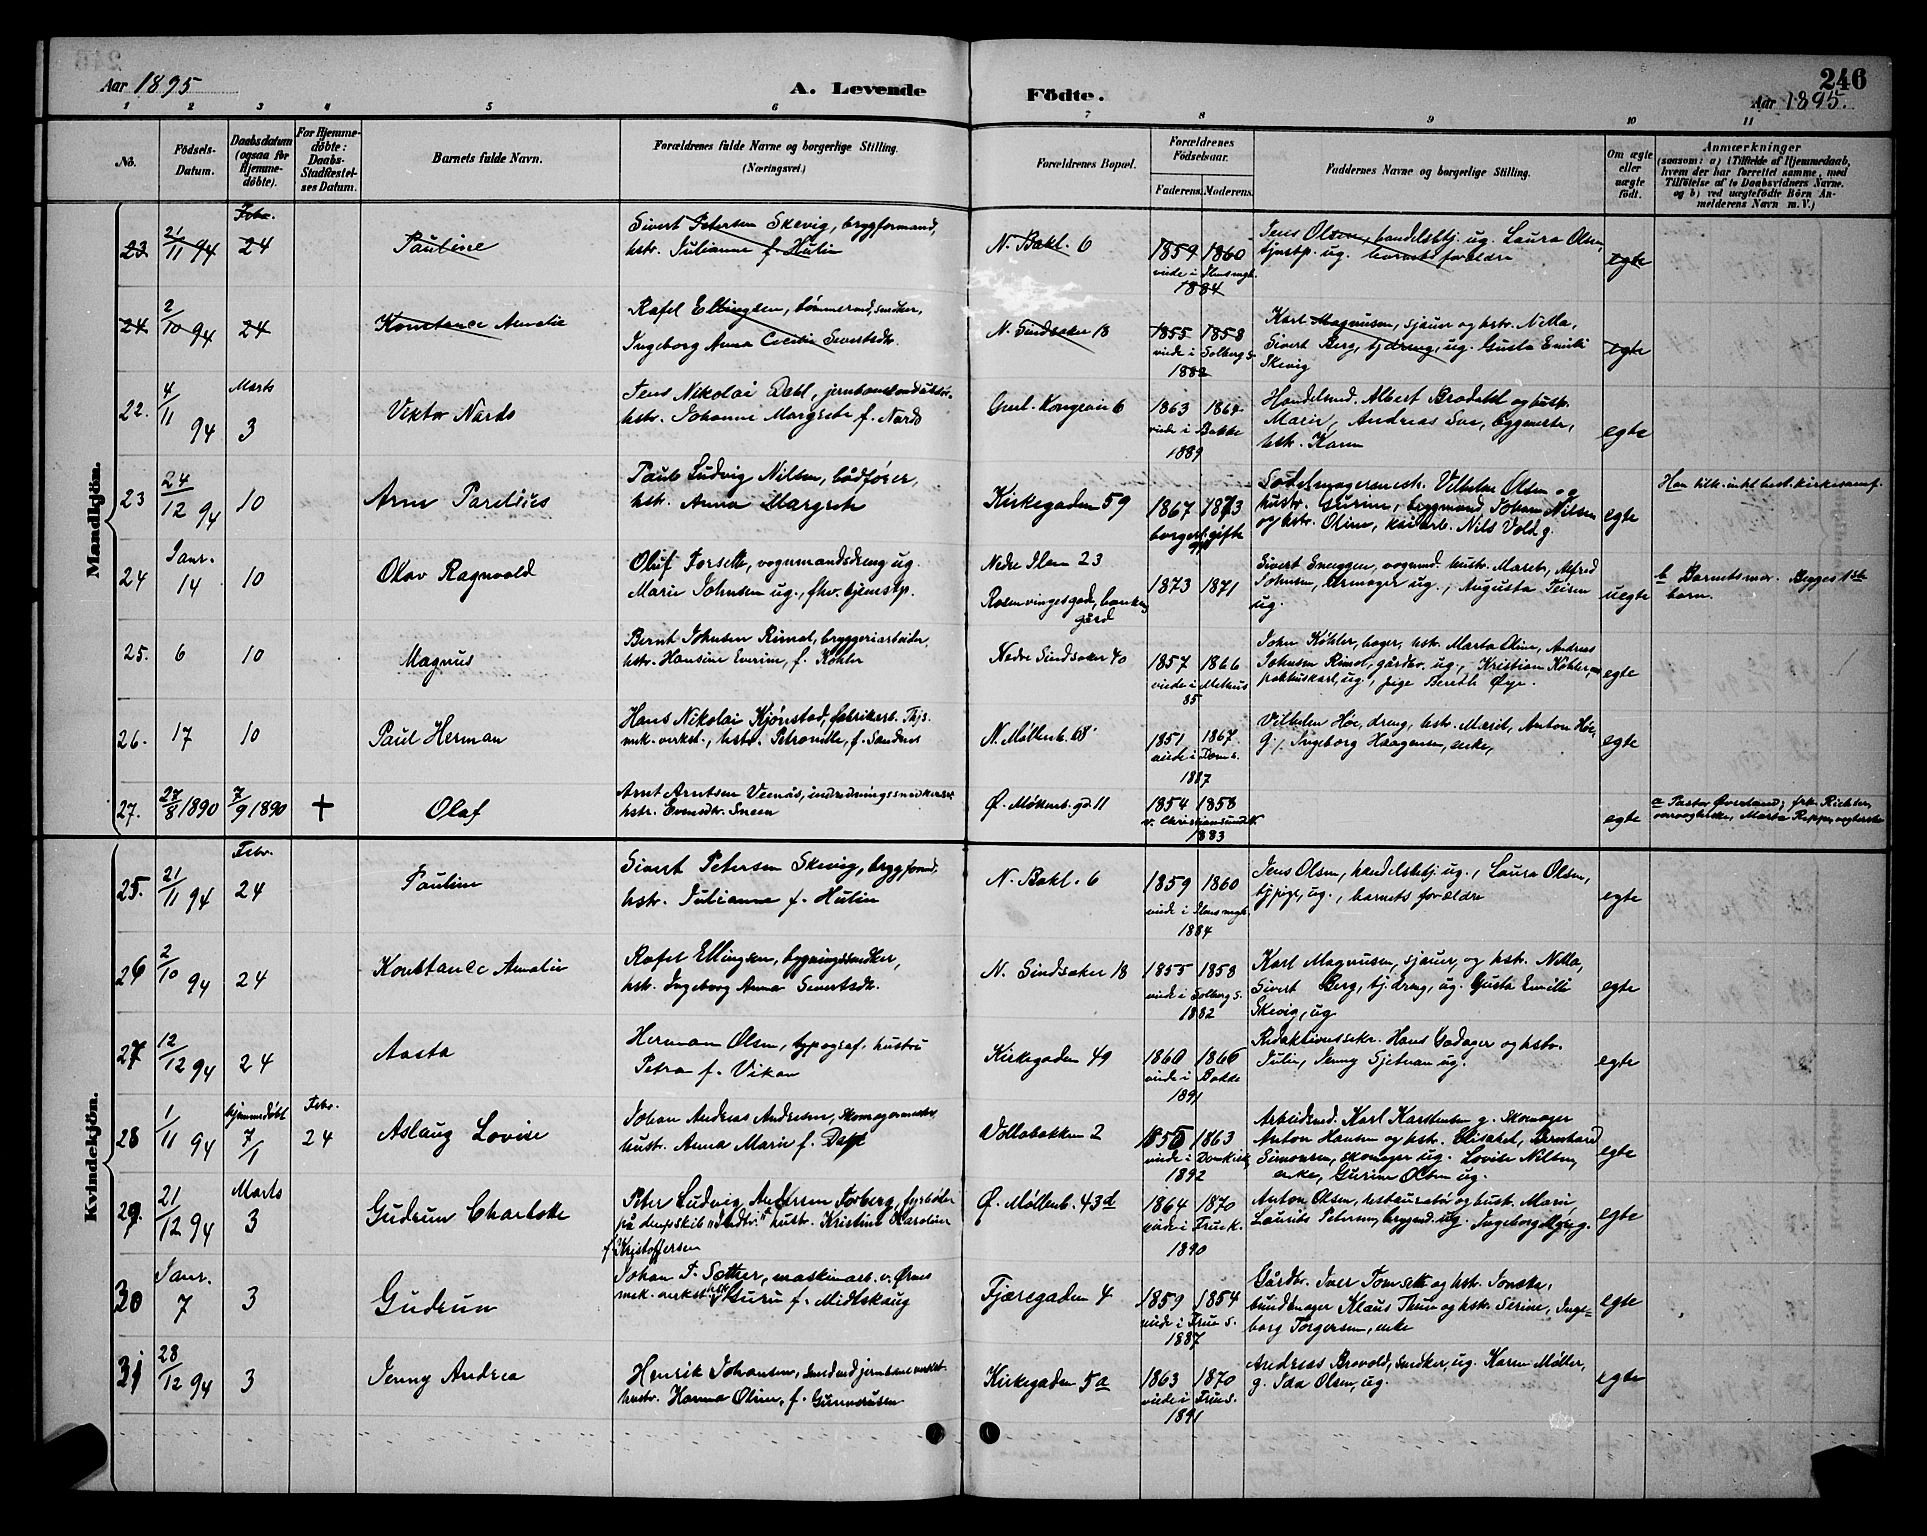 Aar 1895
A. Levende
Födte.
246
Aar 1895.
1 2 3 4 5 6 7 8 9 10 11
No.
Födsels-Datum.
Daabsdatum (ogsaa for Hjemme-döbte).
For Hjemme-döbte: Daabs-Stadfæstel-ses Datum.
Barnets fulde Navn.
Forældrenes fulde Navne og borgerlige Stilling. (Næringsvei.)
Forældrenes Bopæl.
Forældrenes Födselsaar.
Faderens. Moderens.
Faddernes Navne og borgerlige Stilling.
Om ægte eller uægte födt.
Anmærkninger
(saasom: a) i Tilfælde af Hjemmedaab,
hvem der har forrettet samme, med
Tilföielse af to Daabsvidners Navne.
og b) ved uægtefödte Börn An-
melderens Navn m. V.)
Mandkjön.
23 21/11 94 Febr. 24 Pauline
Sivert Petersen Skevig, bryggformand,
hstr. Julianne f. Hulin
N. Bakl. 6
1859 1860
viede i Ilens mgh.
1884
Jens Olsen, handelsbtj. ug. Laura Olsen,
tjenstp. ug. barnets forældre
egte
24 2/10 94 24 Konstance Amalie
Rafel Ellingsen,
Ingeborg Anna Cecilie Sivertsdr.
N. Sindsaker 18
1855 1858
viede i Solberg s.
1882
Karl Magnusen, sjauer og hstr. Nilla,
Sivert Berg, tj.dreng, ug. Gusta Emili
Skevig
egte
22. 4/11 94 Marts 3 Viktor Nardo
Jens Nikolai Dahl,
hstr. Johanne Margrete f. Nardo
Gml. Kongevei 6
1863 1864
viede i Bakke
1889
Handelsmd. Albert Brodahl og hust.
Marie, Andreas Soe, bygmester,
hst. Karen
egte
23 24/12 94 10 Arne Parelius
Paul Ludvig Nilsen, bådfører,
hst. Anna Margrete
Kirkegaden 59
1867 1873
borgerl. gifte
Vilhelm Olsen og
hustr. Gurine, bryggmand Johan Nilsen
og hstr. Oline, Nils Vold g.
egte
24 Janr. 14 10 Olav Ragnvald
Oluf Forseth, vognmandsdreng ug.
Marie Johnsen ug., fhv. tjenstp.
Nedre Ilen 23
Rosenvingesgad,
gård
1873 1871
Sivert vognmd. hustr. Marit, Alfred
Johnsen, urmager ug., Augusta
ug.
uegte
b Barnets mor. Begges 1ste
barn.
25. 6 10 Magnus
Bernt Johnsen Rimol, bryggeriarbeider,
hstr. Hansine Everine, f. Köhler
Nedre Sindsaker 40
1857 1866
viede i Melhus
85
John Köhler, bager, hstr. Marta Oline, Andreas
Johnsen Rimol, gårdbr. ug., Kristian Köhler,
pakhuskarl, ug., pige Bereth Øye.
egte
26. 17 10 Paul Herman
Hans Nikolai Kjönstad, fabrikarb. Thjs.
mek. verkst., hstr. Petronille, f. Sandnes
N. Möllenb. 68
1851 1867
viede i Domk.
1887
Vilhelm Höe, dreng, hstr. Marit, Anton Höe,
g., Ingeborg Haagensen, enke,
egte
27. 27/8 1890 7/9 1890 + Olaf
Arnt Arntsen Vemås, indredningssnedker
hstr.
Ø. Möllenb. gd. 11
1854 1858
v. Christiansund N.
1883
egte
a Pastor Øverland; frk. Richter,
Marta
Kvindekjön.
25. 21/11 94 Febr. 24 Pauline
Sivert Petersen Skevig, bryggformd,
hstr. Julianne f. Hulin
N. Bakl. 6
1859 1860
viede i Ilens mgh.
1884
Jens Olsen, handelsbtj. ug., Laura Olsen,
tj.pige, ug., barnets forældre
egte
26 2/10 94 24 Konstance Amalie
Rafel Ellingsen, bygningssnedker,
hst. Ingeborg Anna Sivertsdr.
N. Sindsaker 18
1855 1858
viede i Solberg s.
1882
Karl Magnusen, sjauer, og hst. Nilla,
Sivert Berg, tj.dreng, ug. Gusta Emilie
Skevig, ug
egte
27 12/12 94 24 Aasta
Herman Olsen, typograf, hustru
Petra f. Vikan
Kirkegaden 49
1860 1866
viede i Bakke
1891
Redaktionssekr. Hans og hstr.
Julie, Jenny Sjetnan ug.
egte
28 1/11 94 hjemmedøbt 7/1 Febr. 24 Aslaug Lovise
Johan Andreas Andresen, skomagermester,
hustr. Anna Marie f. Dahl
Vollabakken 2
1855 1863
viede i Domkirk.
1892
Arbeidsmd. Karl Karstensen g. skomager
Anton Hansen og hst. Elisabet, Bernhard
Simonsen, skomager ug. Lovise Nilsen,
enke, Gurine Olsen ug.
egte
29. 21/12 94 Marts 3 Gudrun Charlotte
Peter Ludvig Andersen Forberg, fyrbøder
på dampskib hustr. Kristine Karoline
f. Kristoffersen
Ø. Möllenb. 43d
1864 1870
viede i Frue k.
1890
Anton Olsen, restauratør og hust. Marie,
Laurits Petersen, bryggmd. ug. Ingeborg g.
egte
30 Janr. 7 3 Gudrun
Johan T. Sæther, maskinarb. v. Ørens
mek. verksted, hstr. Guru f. Midtskaug
Fjæregaden 4
1859 1854
viede i Frue s.
1887
Gårdbr. Iver og hst.
buntmager Klaus Thun og hst. Serine, Inge-
borg Torgersen, enke
egte
31 28/12 94 3 Jenny Andrea
Henrik Johansen,
hustr. Hanna Oline, f. Gunnerusen
Kirkegaden 5a
1863 1870
viede i Frue s.
1891
Andreas Brovold, snedker, ug. Karen Möller,
g. Ida Olsen, ug.
egte